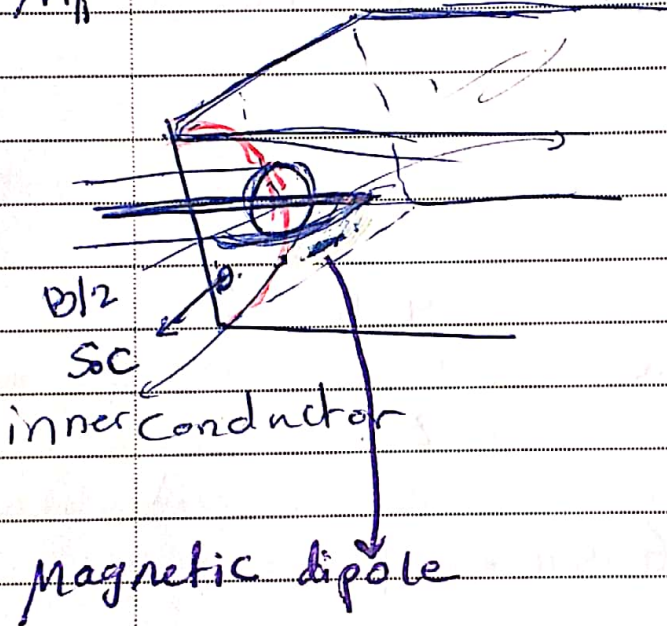 B/2
SoC
inner conductor
Magnetic dipole